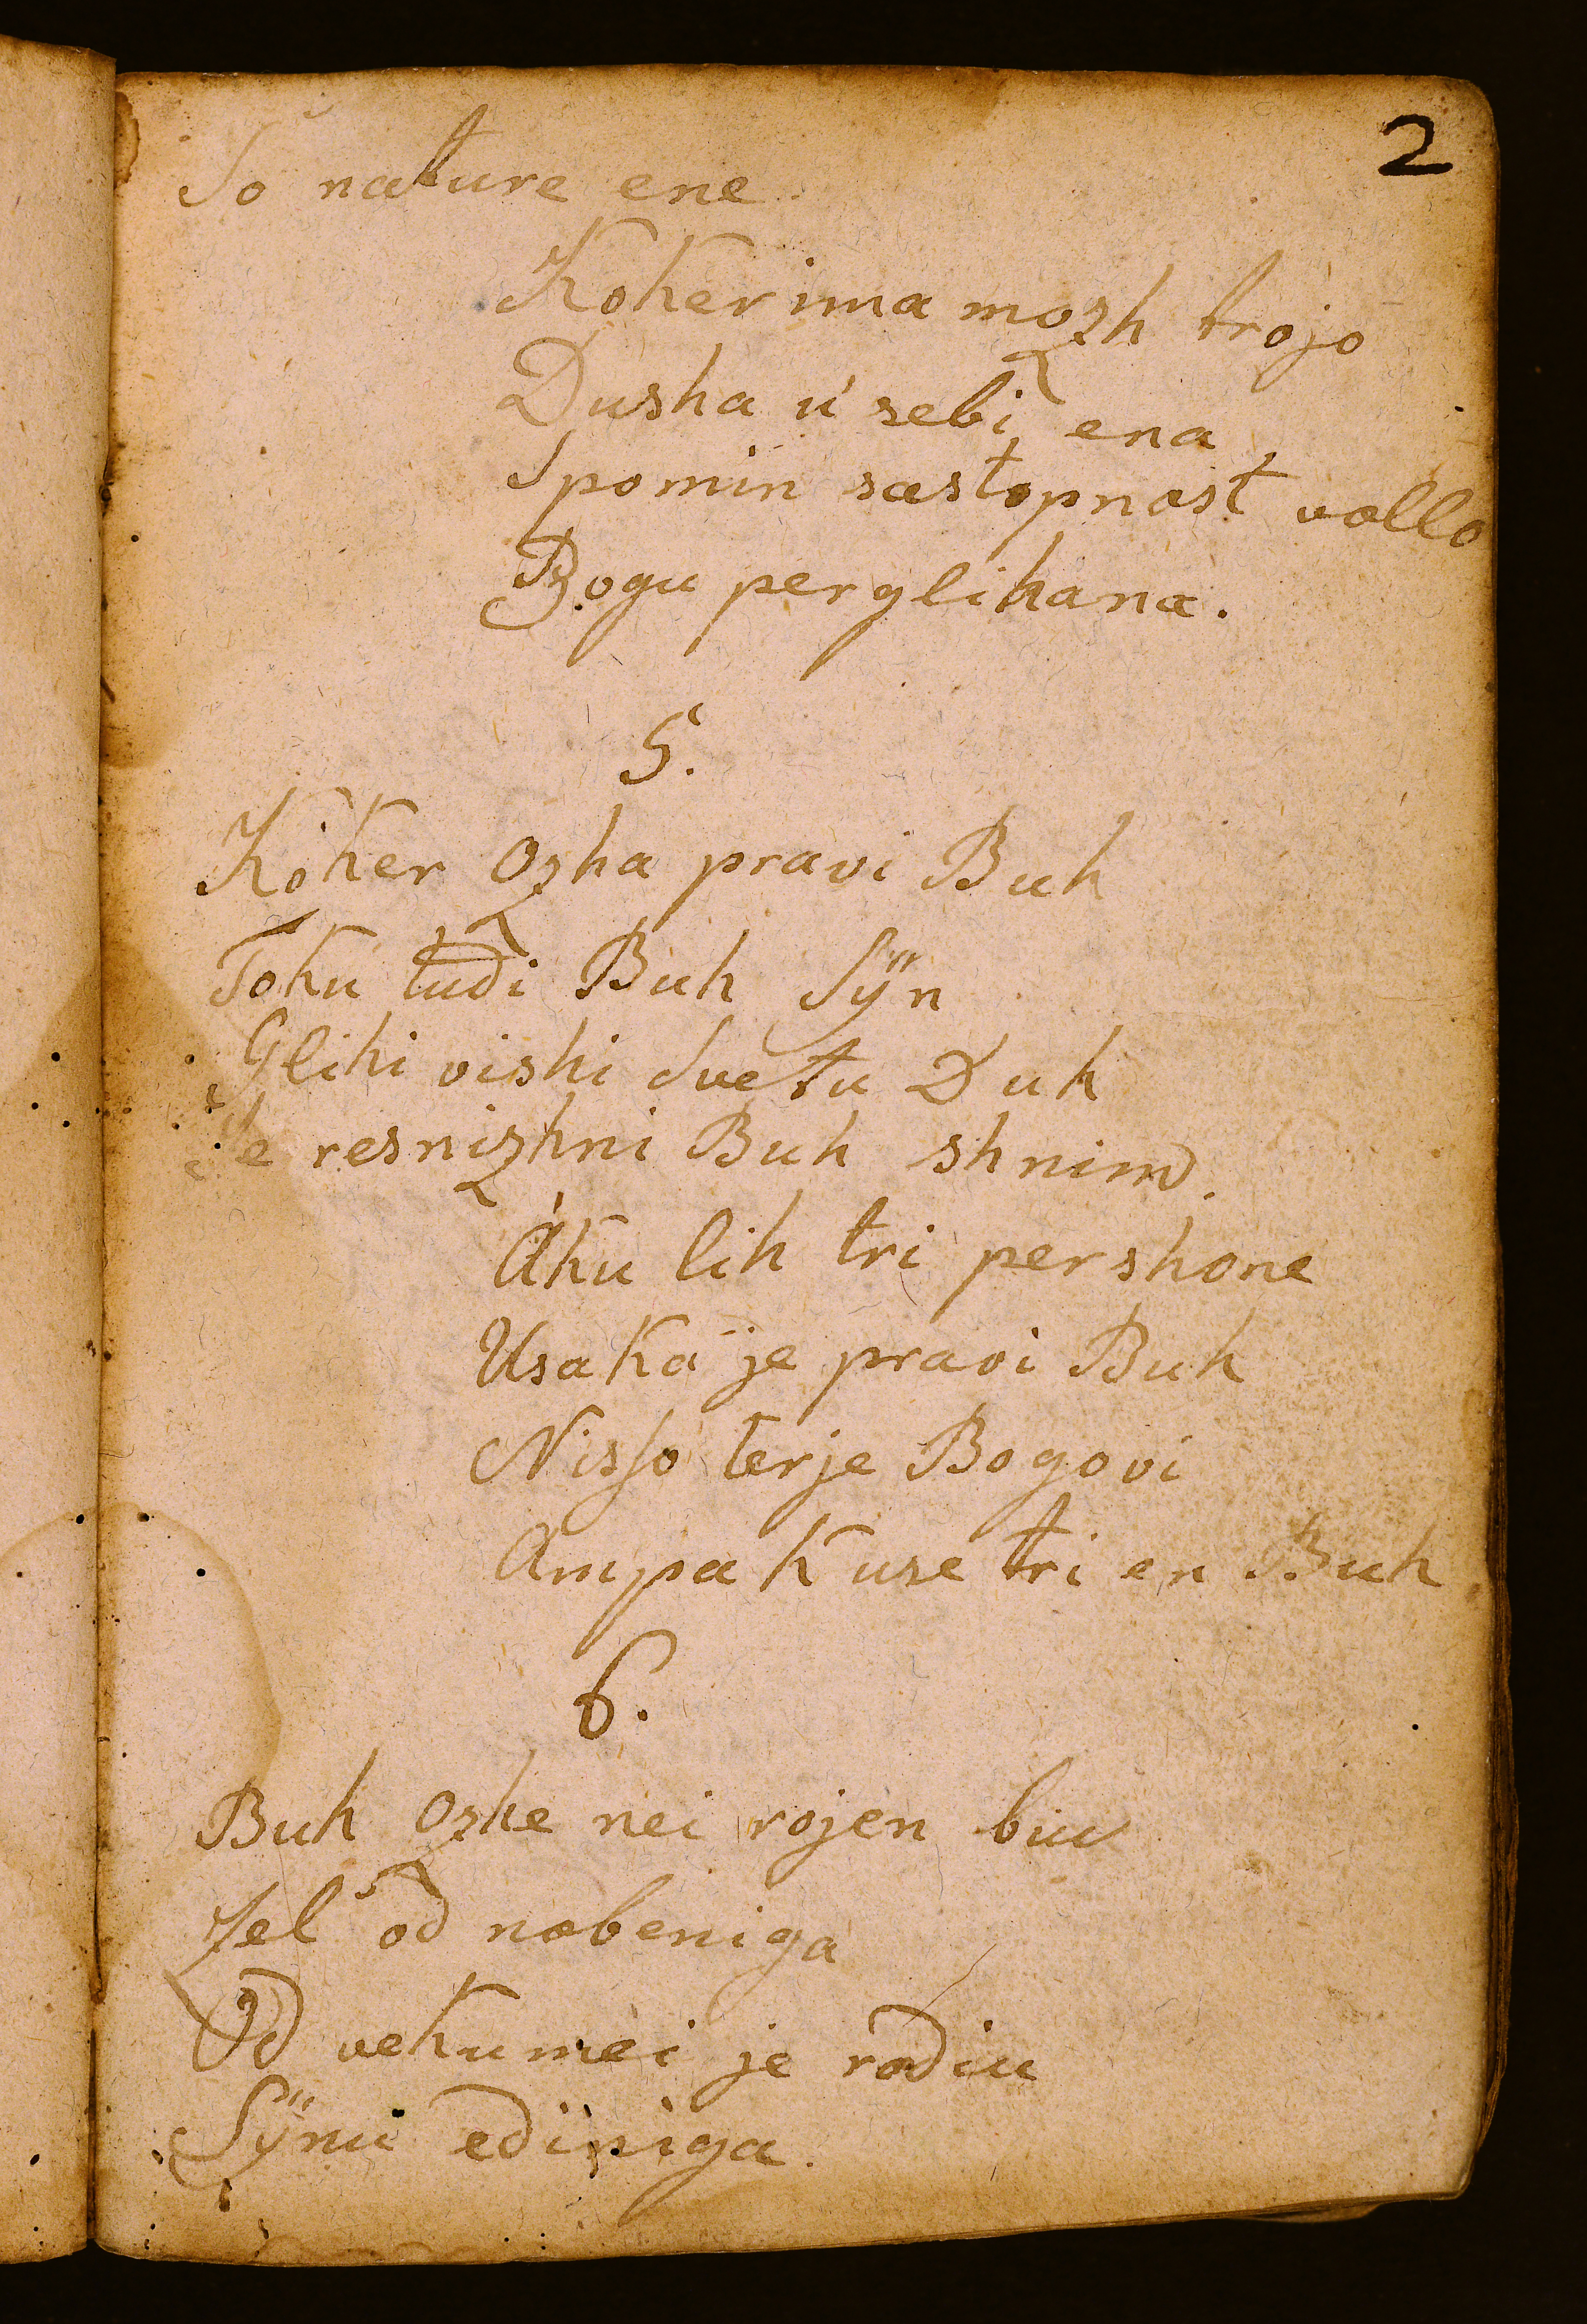 2
So nature ene.
Koker ima mozh trojo
Dusha ú sebi ena
Spomin sastopnast vollo
Bogu perglihana.
5.
Koker Ozha pravi Buh
Toku tudi Buh Sÿn
Glihi vishi Svetu Duh
Je resnizhni Buh shnim.
Aku lih tri pershone
Usaka je pravi Buh
Nisso terje Bogovi
Ampak use tri en Buh
6.
Buh Ozhe nei rojen biu
Zel od nobeniga
Od vekumei je rodiu
Sÿnu ediniga.